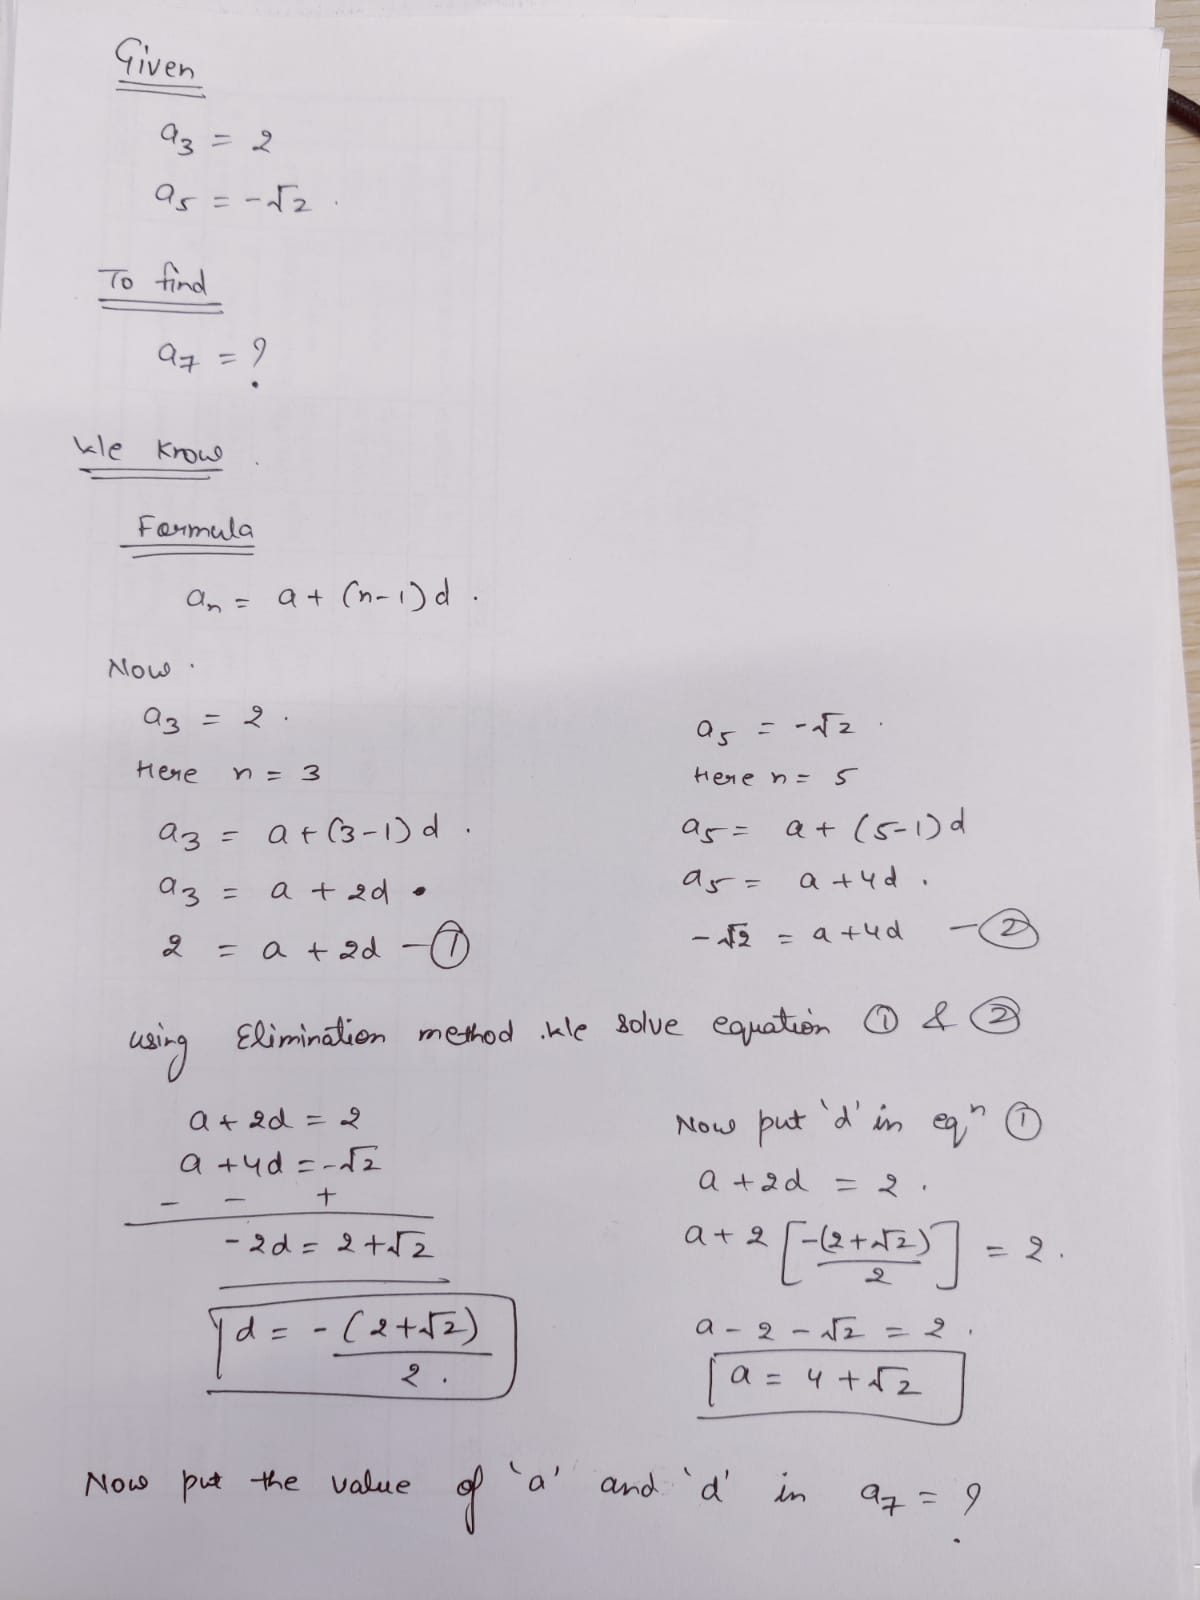 Given
a₃ = 2
a₅ = -√2 .
To find
a₇ = ?
We know .
Formula
aₙ = a + (n-1) d .
Now .
a₃ = 2 .
Here n = 3
a₃ = a + (3-1) d .
a₃ = a + 2d .
2 = a + 2d - ①
a₅ = -√2 .
Here n = 5
a₅ = a + (5-1) d
a₅ = a + 4d .
-√2 = a + 4d - ②
using Elimination method . We solve equation ① & ②
a + 2d = 2
a + 4d = -√2
- - +
-2d = 2 + √2
d = -(2+√2)/2 .
Now put 'd' in eqⁿ ①
a + 2d = 2 .
a + 2 [-(2+√2)/2] = 2 .
a - 2 - √2 = 2 .
a = 4 + √2
Now put the value of 'a' and 'd' in a₇ = ?